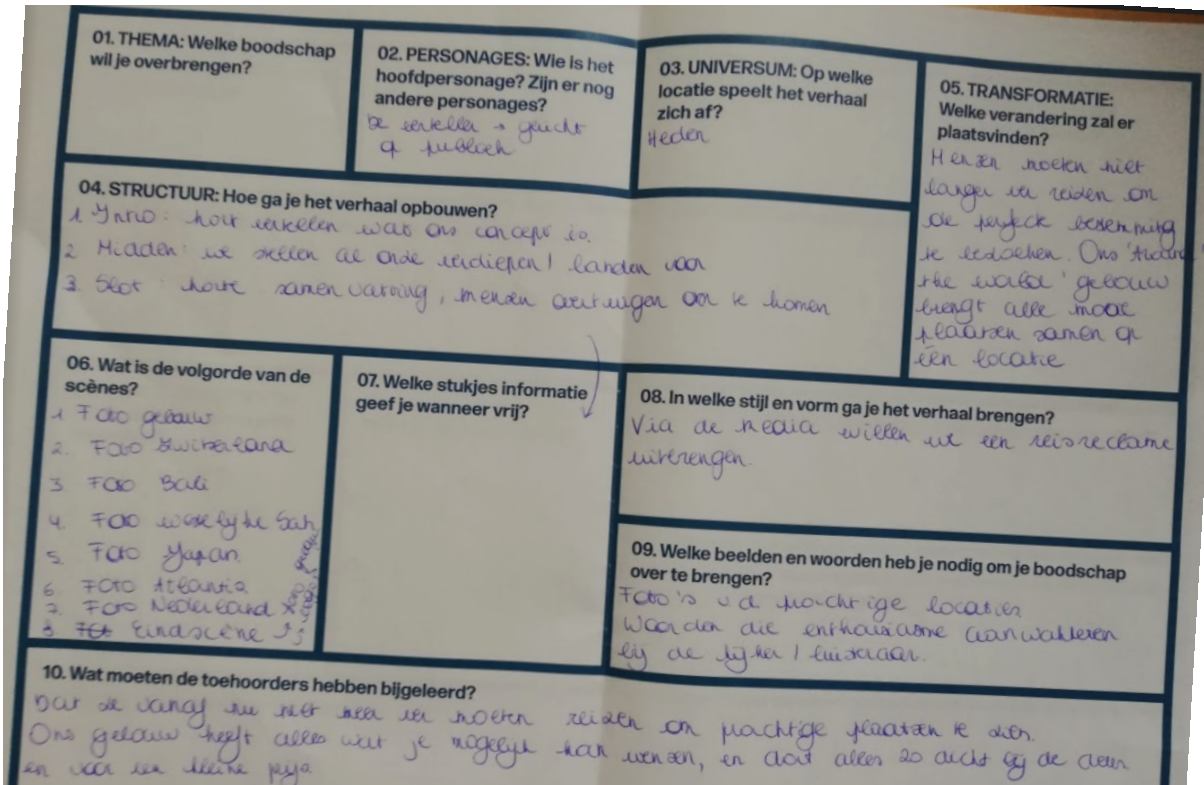 01. THEMA: Welke boodschap
wil je overbrengen?
02. PERSONAGES: Wie is het
hoofdpersonage? Zijn er nog
andere personages?
De verteller → gericht
op publiek
03. UNIVERSUM: Op welke
locatie speelt het verhaal
zich af?
Heden
05. TRANSFORMATIE:
Welke verandering zal er
plaatsvinden?
Mensen moeten niet
langer ver reizen om
de perfecte bestemming
te bezoeken. Ons 'Around
the world' gebouw
brengt alle mooie
plaatsen samen op
één locatie
04. STRUCTUUR: Hoe ga je het verhaal opbouwen?
1. Intro: kort vertellen wat ons concept is.
2. Midden: we stellen al onze verdiepen / landen voor
3. Slot: korte samenvatting, mensen overtuigen om te komen
06. Wat is de volgorde van de
scènes?
1. Foto gebouw
2. Foto Zwitserland
3. Foto Bali
4. Foto
5. Foto Japan.
6. Foto Atlantis
7. Foto Nederland
8 Eindscène
07. Welke stukjes informatie
geef je wanneer vrij?
08. In welke stijl en vorm ga je het verhaal brengen?
Via de media willen we een reisreclame
uitbrengen.
09. Welke beelden en woorden heb je nodig om je boodschap
over te brengen?
Foto's v d prachtige locaties
Woorden die enthousiasme aanwakkeren
bij de kijker / luisteraar.
10. Wat moeten de toehoorders hebben bijgeleerd?
Dat ze vanaf nu niet meer ver moeten reizen om prachtige plaatsen te zien.
Ons gebouw heeft alles wat je mogelijk kan wensen, en dat alles zo dicht bij de deur
en voor een kleine prijs